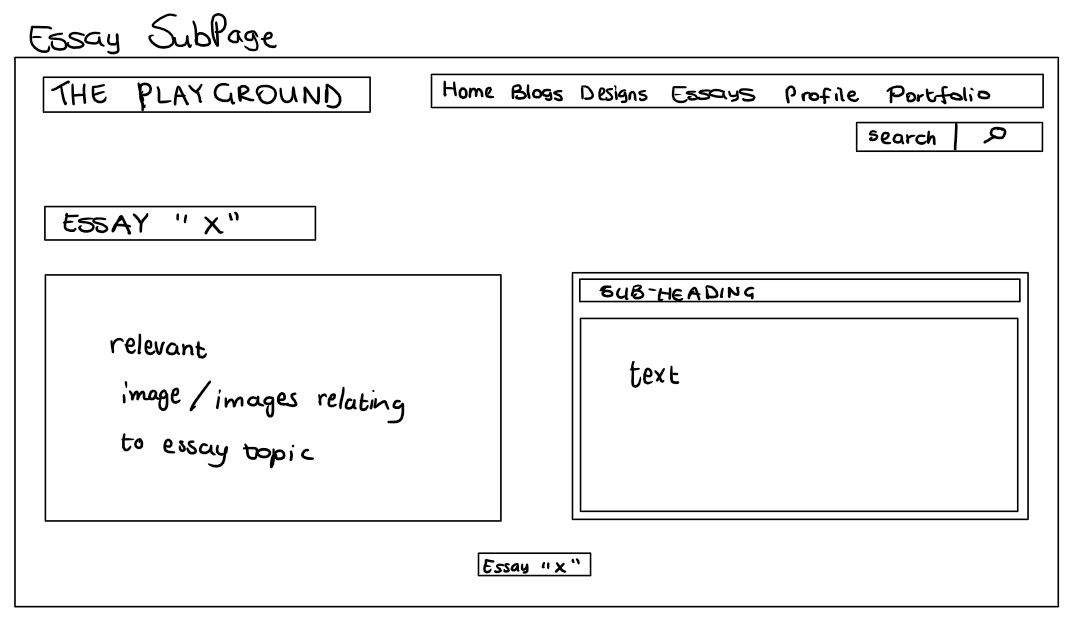 Essay SubPage
THE PLAYGROUND
Home Blogs Designs Essays Profile Portfolio
search
ESSAY "X"
relevant
image/images relating
to essay topic
SUB-HEADING
text
Essay "X"